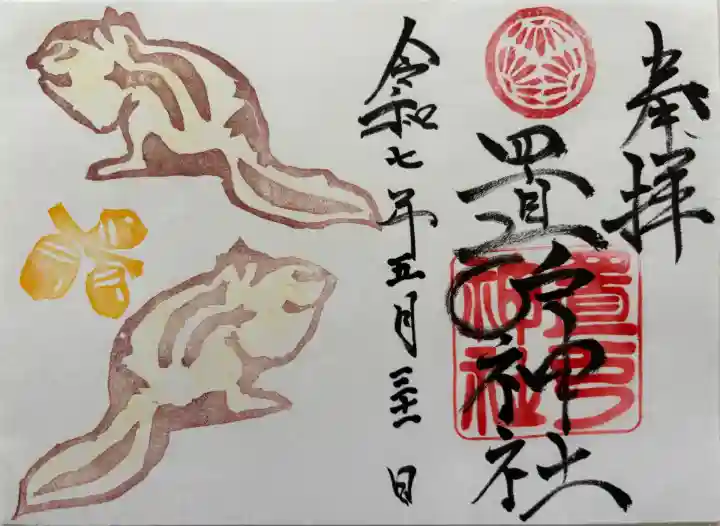 奉拝
置戸神社
令和七年五月三十一日
置戸
神社